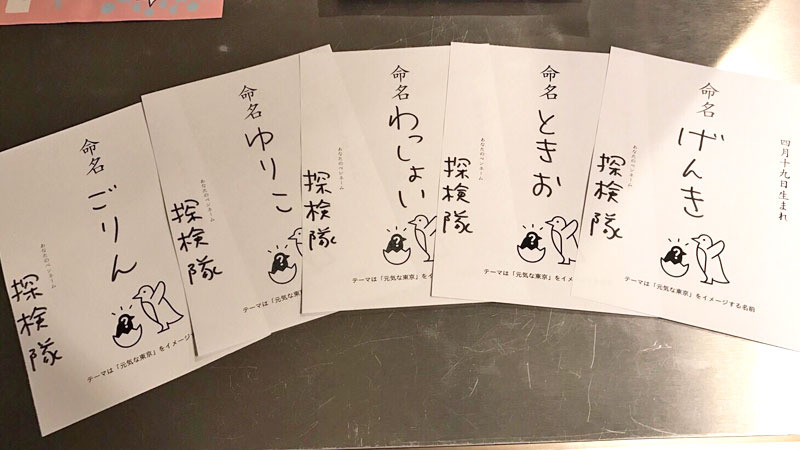 命名
ごりん
あなたのペンネーム
探検隊
テーマは「元気な東京」をイメージす
命名
ゆりこ
あなたのペンネーム
探検隊
テーマは「元気な東
命名
わっしょい
あなたのペンネーム
探検隊
テーマは「元気な東京
命名
ときお
あなたのペンネーム
探検隊
テーマは「元気な東京」をイメ
四月十九日生まれ
命名
げんき
あなたのペンネーム
探検隊
テーマは「元気な東京」をイメージする名前